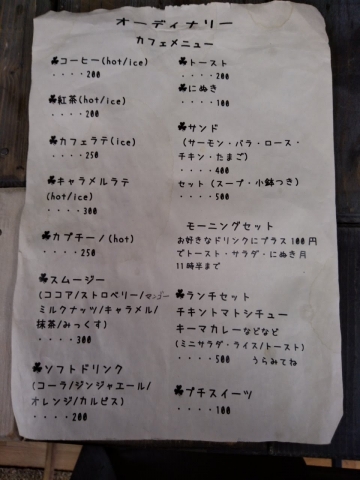 オーディナリー
カフェメニュー
♣コーヒー(hot/ice)
・・・・200
♣紅茶(hot/ice)
・・・・200
♣カフェラテ(ice)
・・・・250
♣キャラメルラテ
(hot/ice)
・・・・300
♣カプチーノ(hot)
・・・・250
♣スムージー
(ココア/ストロベリー/マンゴー
ミルクナッツ/キャラメル/
抹茶/みっくす)
・・・・300
♣ソフトドリンク
(コーラ/ジンジャエール/
オレンジ/カルピス)
・・・・200
♣トースト
・・・・200
♣にぬき
・・・・100
♣サンド
(サーモン・バラ・ロース・
チキン・たまご)
・・・・400
セット(スープ・小鉢つき)
・・・・500
モーニングセット
お好きなドリンクにプラス100円
でトースト・サラダ・にぬき月
11時半まで
♣ランチセット
チキントマトシチュー
キーマカレーなどなど
(ミニサラダ・ライス/トースト)
・・・・500 うらみてね
♣プチスイーツ
・・・・100